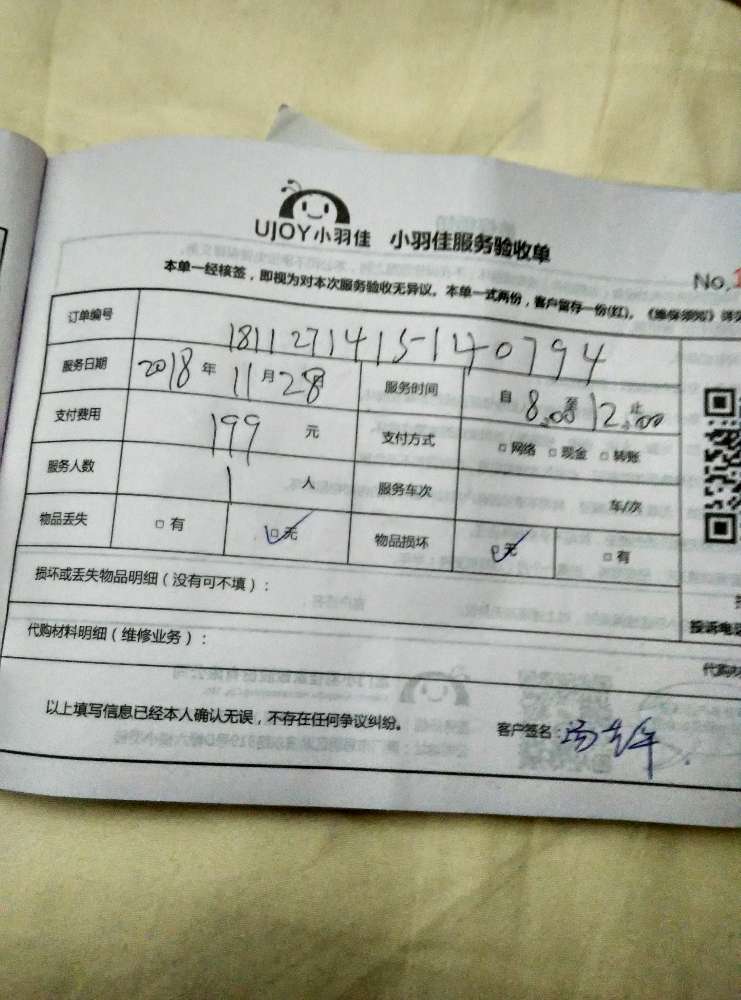 UJOY小羽佳 小羽佳服务验收单
No.1
本单一经核签，即视为对本次服务验收无异议。本单一式两份，客户留存一份(红)。《维保须知》详见
订单编号 181127141514 0794
服务日期 2018年11月28 服务时间 自 8:00 至 12:00 止
支付费用 199 元 支付方式 □网络 □现金 □转账
服务人数 1 人 服务车次 车/次
物品丢失 □有 ☑无 物品损坏 ☑无 □有
损坏或丢失物品明细（没有可不填）：
投诉电话
代购材料明细（维修业务）：
代购材
以上填写信息已经本人确认无误，不存在任何争议纠纷。 客户签名：